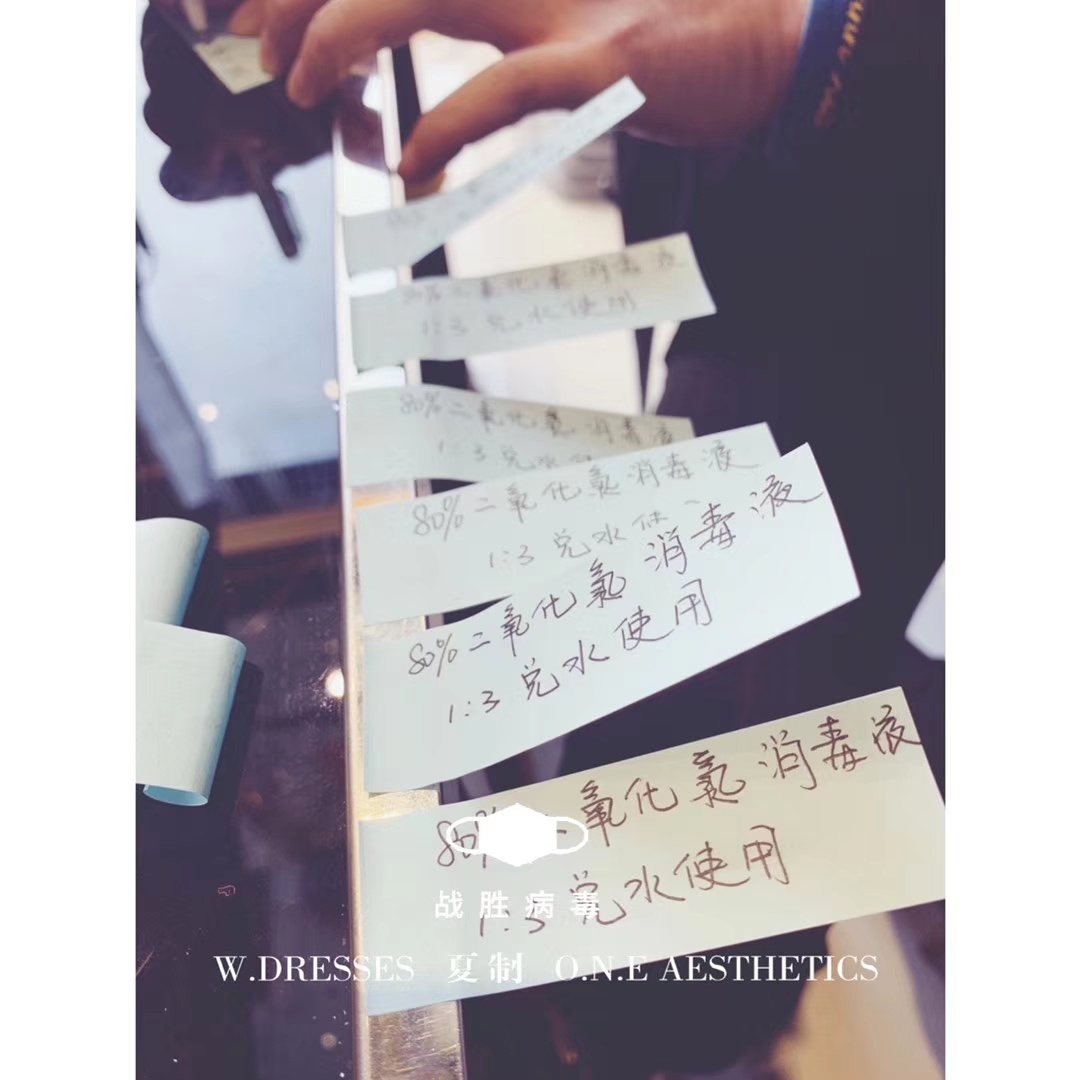 80%二氧化氯消毒液
1:3兑水使用
80%二氧化氯消毒液
80%二氧化氯消毒液
1:3兑水使
80%二氧化氯消毒液
1:3兑水使用
80%二氧化氯消毒液
1:3兑水使用
战胜病毒
W.DRESSES 夏制 O.N.E AESTHETICS